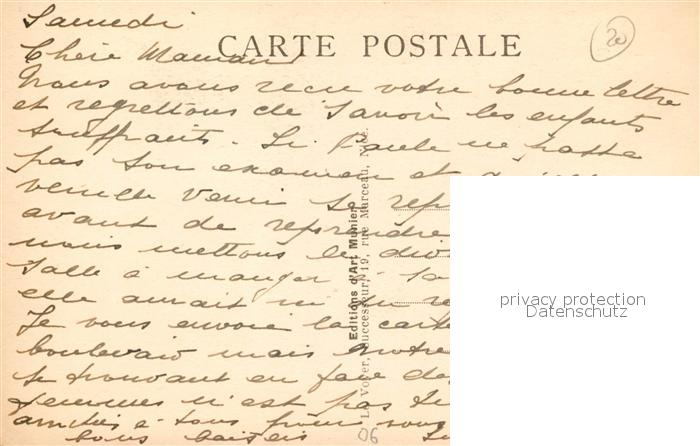 Samedi
CARTE POSTALE
20
Chère Maman
Nous avons reçu votre bonne lettre
et regrettons de savoir les enfants
souffrants. Si Paule ne passe
pas son examen et
veuille venir se rep
avant de reprendre
nous mettons le div
salle à manger
elle aurait
Je vous envoie la carte
boulevard mais notre
se trouvant en face de
n'est pas
amitiés à tous
bons baisers
Editions d'Art Munier
Le Voyer, Successeur, 19, rue Marceau, Nice.
06
privacy protection
Datenschutz